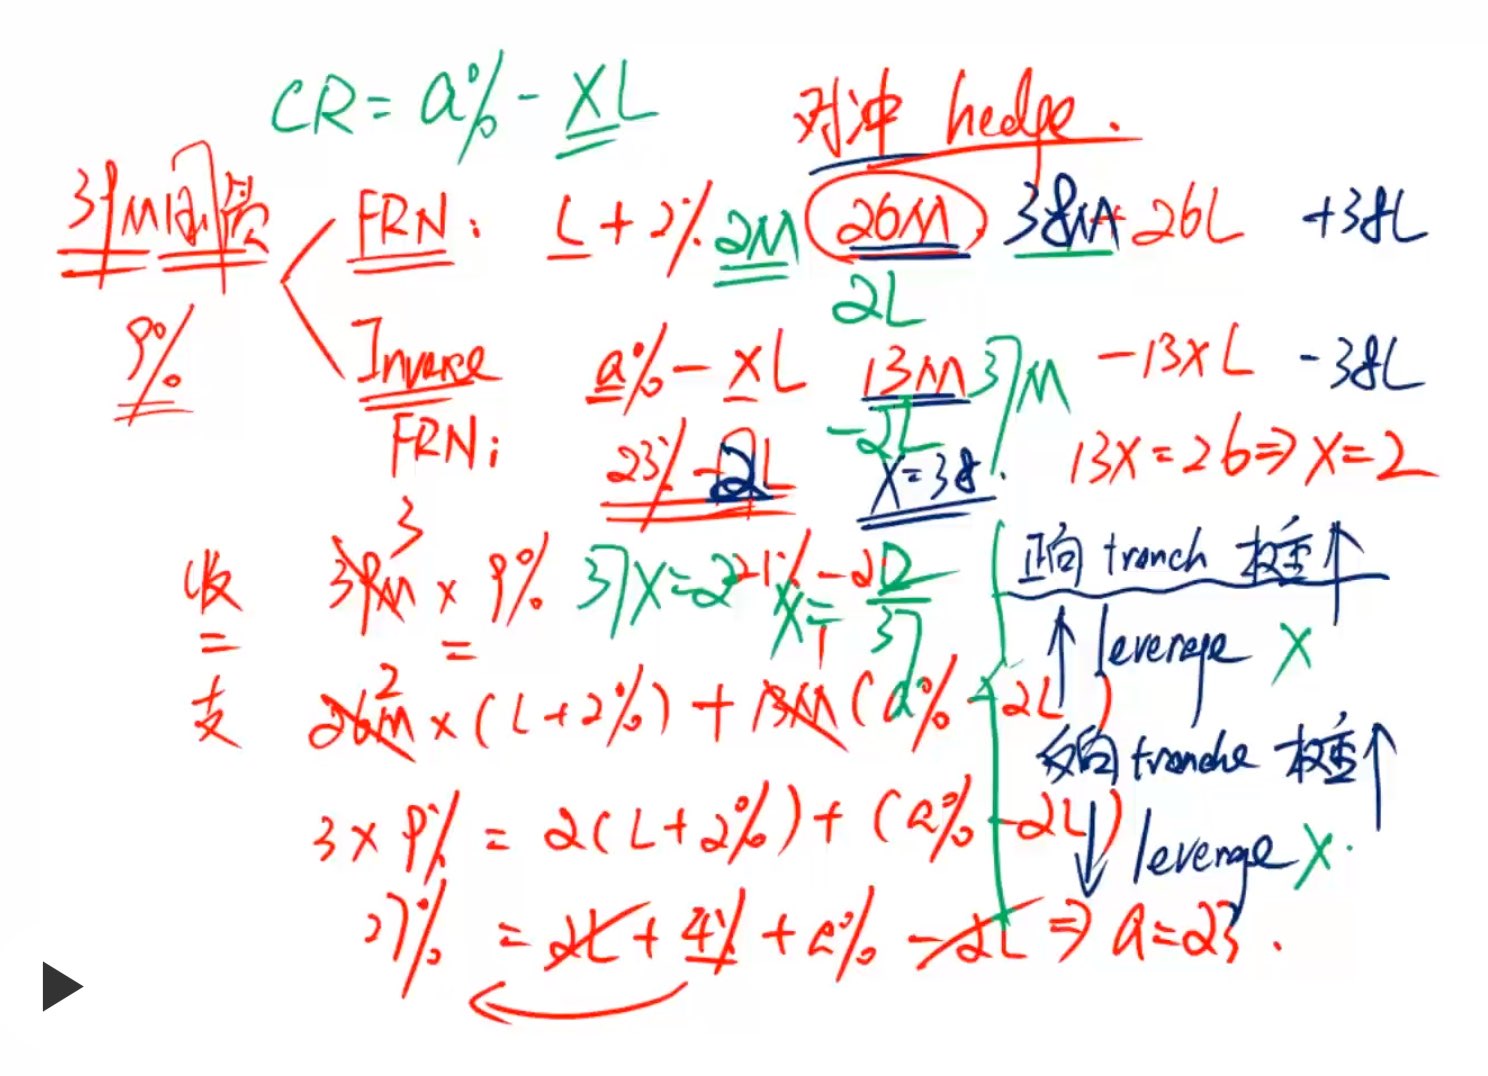 CR = a% - XL
对冲 hedge.
39M固资 FRN: L + 2% 2M 26M 38M 26L +38L
2L
9% Inverse a% - XL 13M 37M -13XL -38L
-2L
FRN: 23% - 2L X=38. 13X = 26 ⇒ X = 2
3
收 39M × 9% 37X=2 21% - 2L X= 2/37 正向 tranch 权重↑
= =
↑ leverage X
2
支 26M × (L+2%) + 13M (a% - 2L)
反向 tranche 权重↑
3 × 9% = 2(L+2%) + (a% - 2L)
↓ leverage X.
27% = 2L + 4% + a% - 2L ⇒ a = 23.